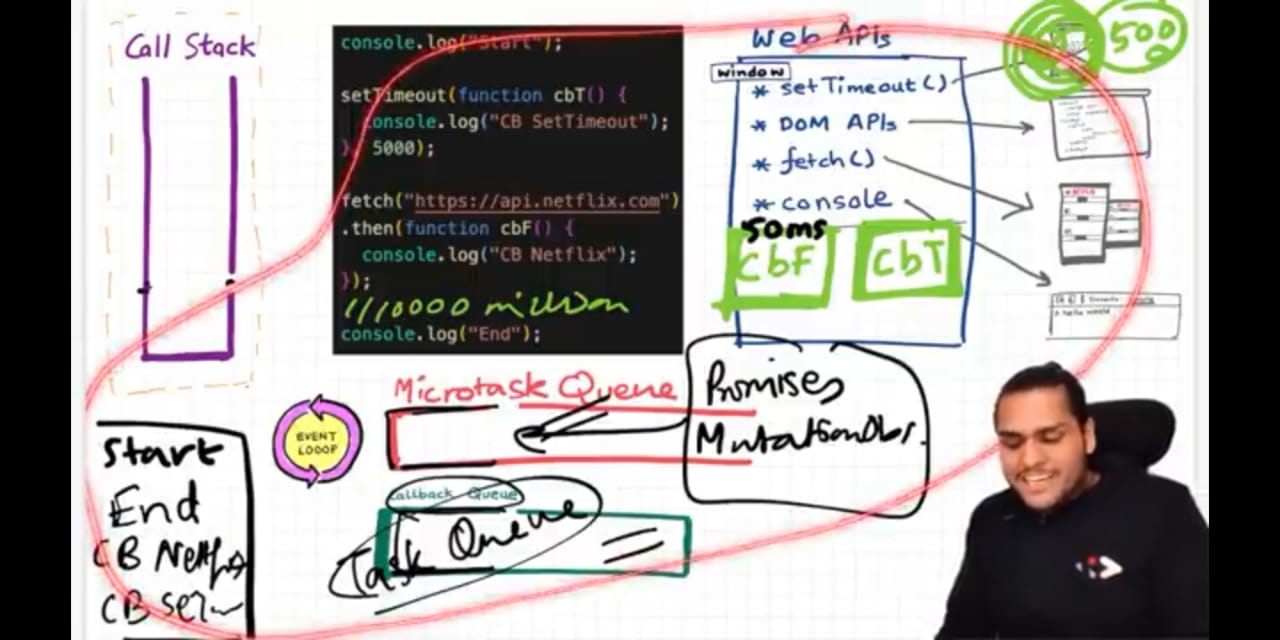 Call Stack
console.log("Start");
setTimeout(function cbT() {
console.log("CB SetTimeout");
}, 5000);
fetch("https://api.netflix.com")
.then(function cbF() {
console.log("CB Netflix");
});
console.log("End");
Web APIs
window
* setTimeout()
* DOM APIs
* fetch()
* console
50ms
CbF
CbT
500
Microtask Queue
Promises
EVENT
LOOOP
Callback Queue
Task Queue
Start
End
CB
CB